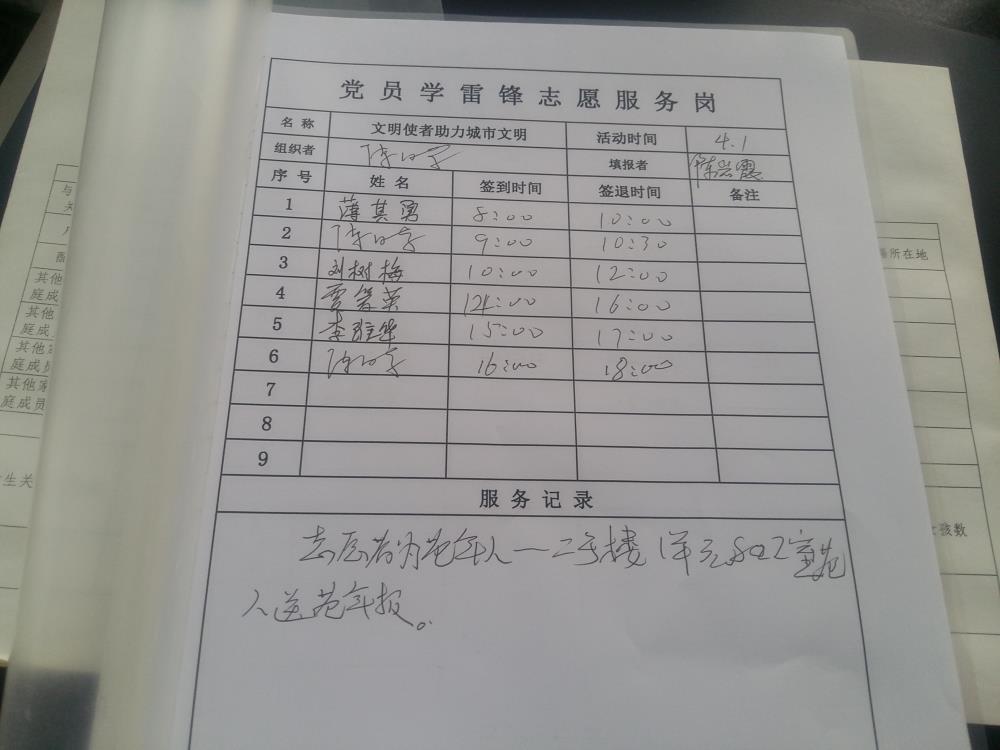 党员学雷锋志愿服务岗
名称 文明使者助力城市文明 活动时间 4.1
组织者 填报者
序号 姓名 签到时间 签退时间 备注
1 薄其勇 8:00 10:00
2 9:00 10:30
3 刘树梅 10:00 12:00
4 14:00 16:00
5 15:00 17:00
6 16:00 18:00
7
8
9
服务记录
志愿者为老年人一二号楼1单元802室老
人送老年报。
其他
庭成员
其他
庭成
其他家
庭成员
其他家
庭成员
生关
所在地
孩数